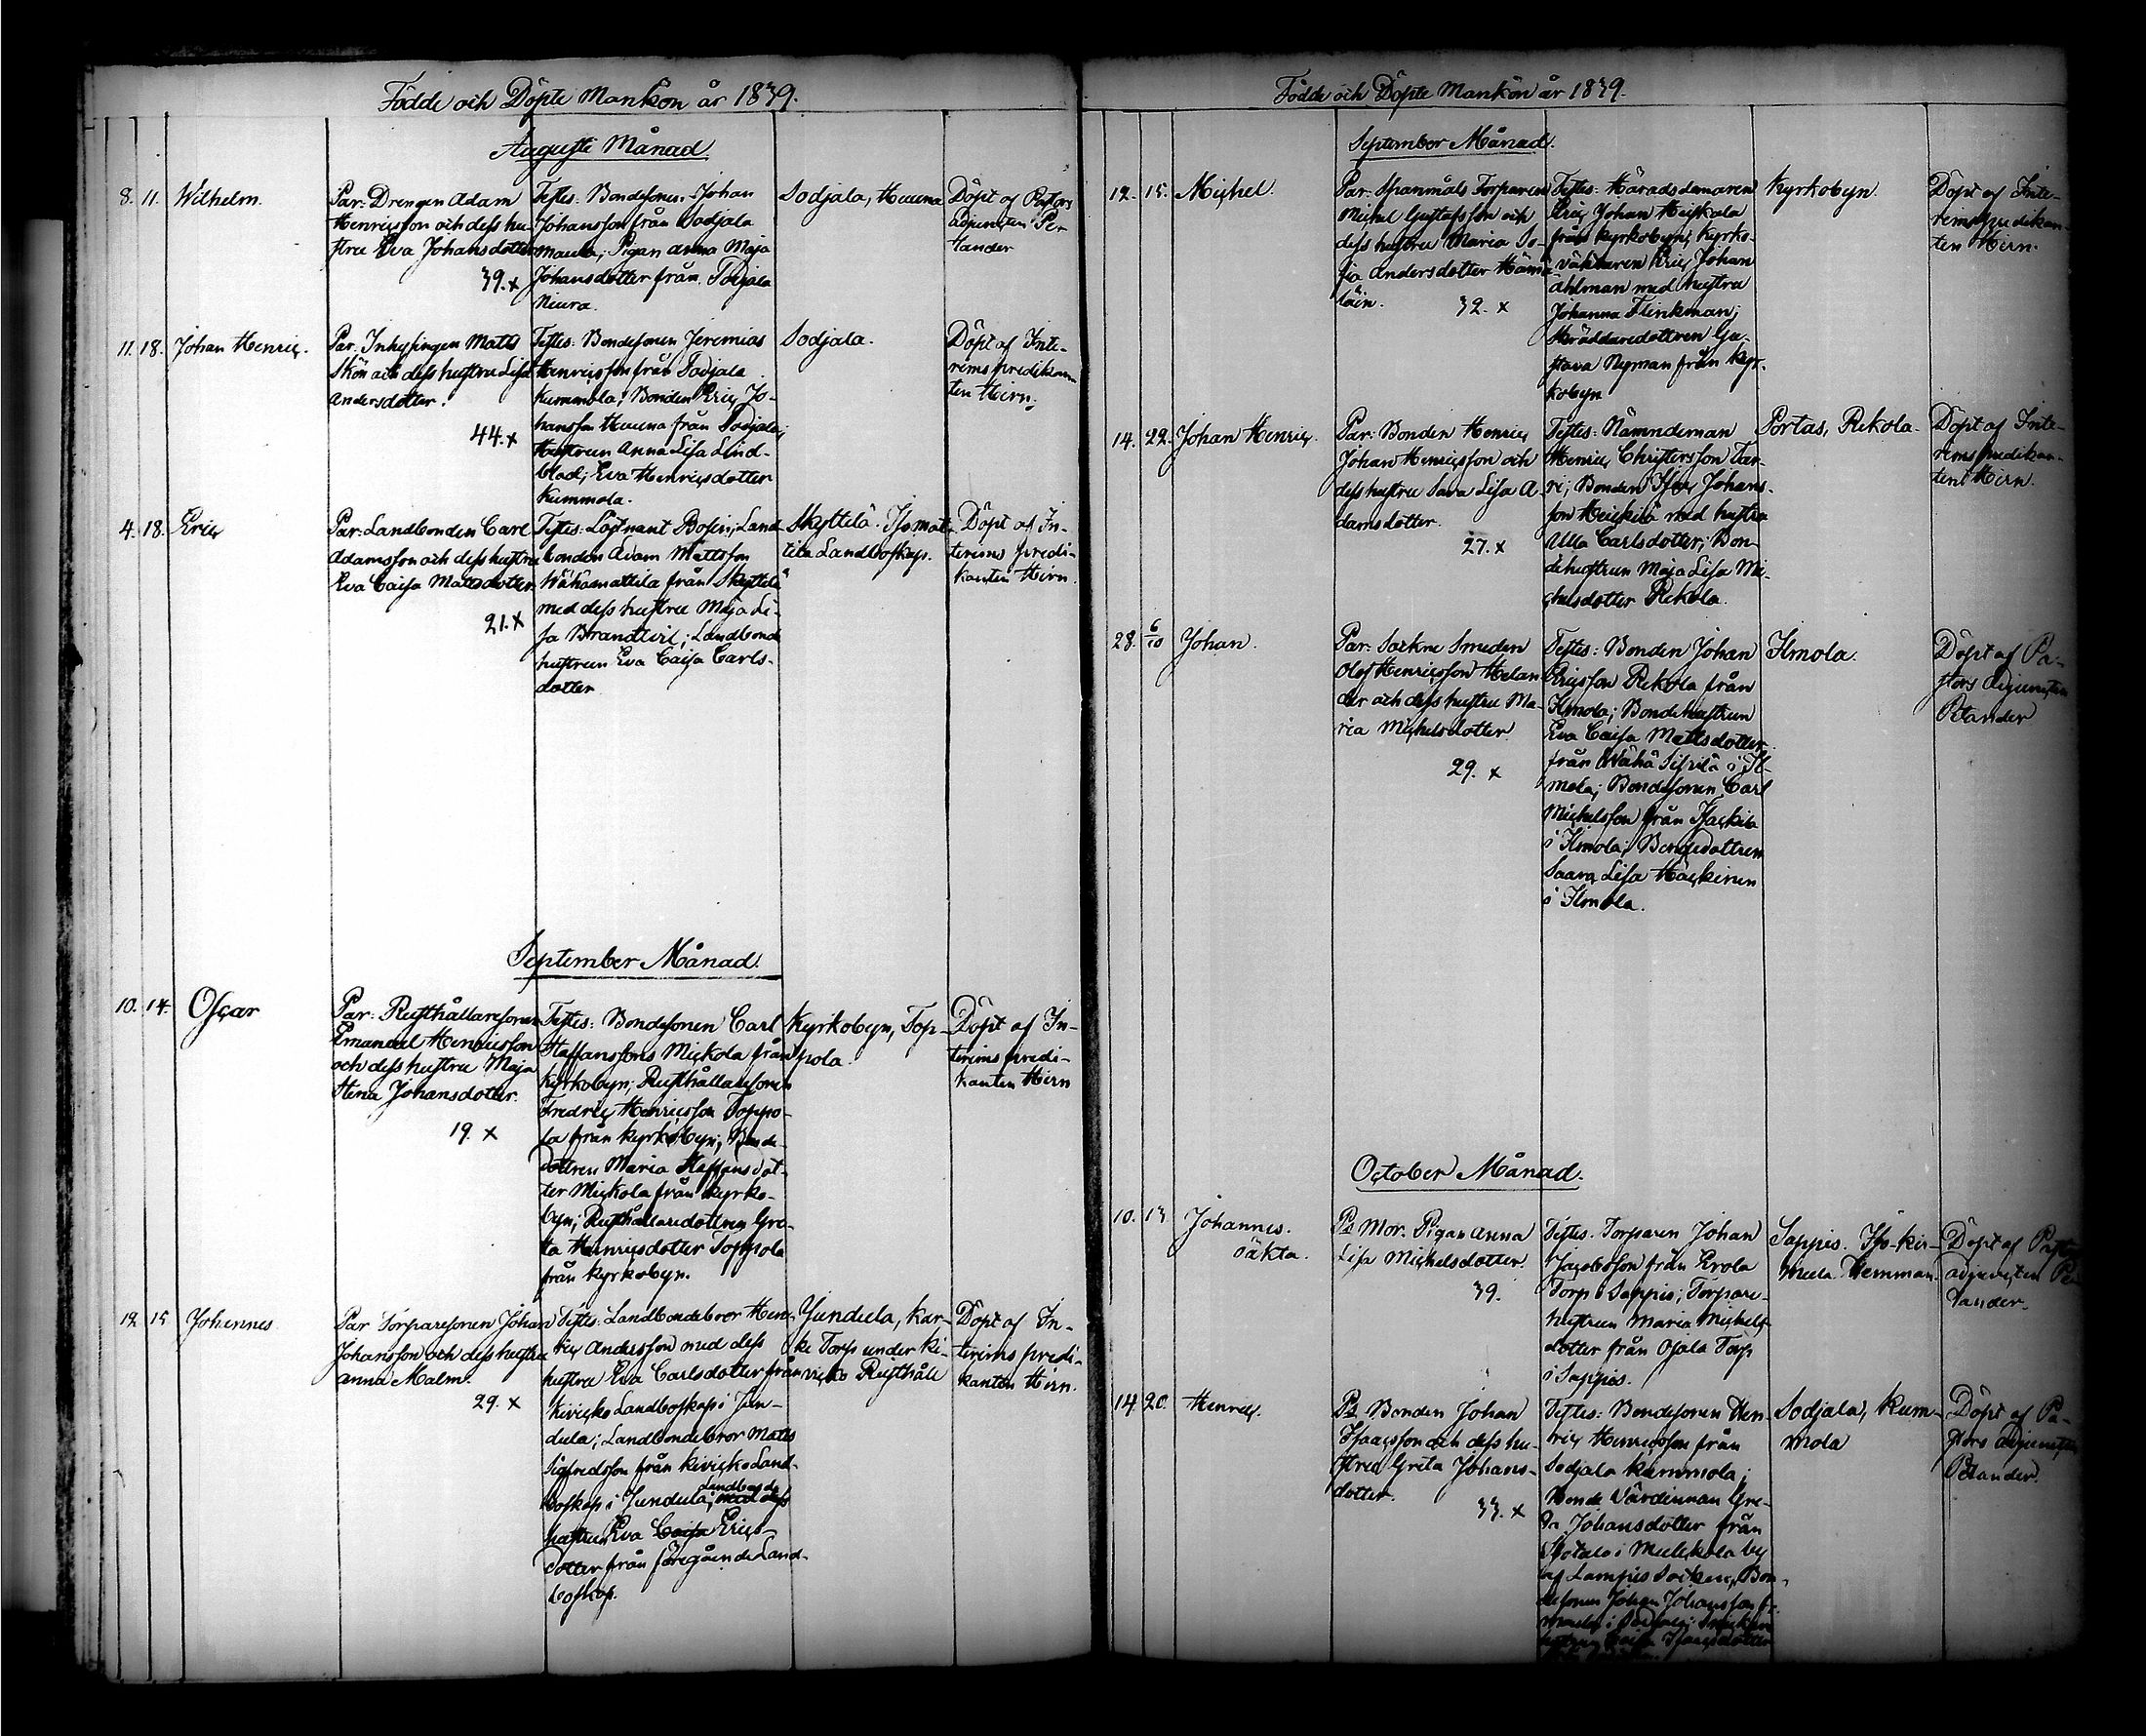 Födde och Döpte Mankön år 1839.
Augusti Månad
8. 11. Wilhelm.
Par: Drengen Adam
Henricsson och dess hu-
stru Eva Johansdotter
39. x
Testes: Bondesonen Johan
Johansson från Sodjala
Maula; Pigan Anna Maja
Johansdotter från Sodjala
Niura.
Sodjala,
Döpt af Pastors
adjuncten Pe
tander
11. 18. Johan Henric.
Par: Inhysingen Matts
Skön och dess hustru Lisa
Andersdotter.
44. x
Testes: Bondesonen Jeremias
Henricsson från Sodjala
Kummola; Bonden Eric Jo-
hansson från Sodjala;
Hustrun Anna Lisa Lind-
blad; Eva Henricsdotter
Kummola.
Sodjala.
Döpt af Inte-
rims predikan
ten Hirn.
4. 18. Eric
Par: Landbonden Carl
Adamsson och dess hustru
Eva Caisa Mattsdotter
21. x
Testes: Löjtnant Land
bonden Adam Mattsson
Wähämattila från Skyttelä
med dess hustru Maja Li-
sa Landbonde
hustrun Eva Caisa Carls-
dotter
Skyttelä. Isomat
tila Landboskap.
Döpt af In-
terims predi-
kanten Hirn.
September Månad.
10. 14. Oscar
Par: Rusthållaresonen
Emanuel Henricsson
och dess hustru Maja
Stina Johansdotter.
19. x
Testes: Bondesonen Carl
Staffanssons Mickola från
Kyrkobyn; Rusthållaresonen
Fredric Henricsson Toppo-
la från Kyrkobyn; Bonde-
dottren Maria Staffansdot-
ter Mickola från Kyrko-
byn; Rusthållaredottren Gre-
ta Henricsdotter Toppola
från Kyrkobyn.
Kyrkobyn, Top-
pola.
Döpt af In-
terims predi-
kanten Hirn
12. 15. Johannes
Par Torparesonen Johan
Johansson och dess hustru
Anna Malm.
29. x
Testes: Landbondebror Hen-
ric Andersson med dess
hustru Eva Carlsdotter från
Kivicko Landboskap i Jun-
dula; Landbondebror Matts
Sigfredsson från Kivicko Land-
boskap i Jundula; Landbonde
med dess
hustrun Eva Caisa Erics-
dotter från föregående Land-
boskap.
Jundula, Kar-
ke Torp under Ki-
vicko Rusthåll
Döpt af In-
terims predi-
kanten Hirn.
Födde och Döpte Mankön år 1839.
September Månad.
12. 15. Michel.
Par: Spanmåls Torparen
Michel Gustafsson och
dess hustru Maria So-
fia Andersdotter Hämä
läin.
32. x
Testes: Häradsdomaren
Eric Johan Heickola
från Kyrkobyn; Kyrko-
väktaren Eric Johan
Ahlman med hustru
Johanna Flinkman;
Skräddaredottren Gu-
stava Nyman från Kyr-
kobyn
Kyrkobyn.
Döpt af Inte-
rims predikan-
ten Hirn.
14. 22. Johan Henric.
Par: Bonden Henric
Johan Henricsson och
dess hustru Sara Lisa A-
damsdotter.
27. x
Testes: Nämndeman
Henric Christersson Tar-
ri; Bonden Johans-
son Heickilä med hustru
Ulla Carlsdotter; Bon-
dehustrun Maja Lisa Mi-
chelsdotter Rekola.
Portas, Rekola.
Döpt af Inte-
rims predikan-
ten Hirn.
28. 6/10 Johan.
Par: Sockne Smeden
Olof Henricsson Helan
der och dess hustru Ma-
ria Michelsdotter
29. x
Testes: Bonden Johan
Ericsson Rekola från
Ilmola; Bondehustrun
Eva Caisa Mattsdotter
från Wähä i Il-
mola; Bondesonen Carl
Michelsson från
i Ilmola; Bondedottren
Saara Lisa
i Ilmola.
Ilmola.
Döpt af Pa-
stors adjuncten
Petander
October Månad.
10. 13 Johannes.
oäkta.
Ps Mor. Pigan Anna
Lisa Michelsdotter.
39.
Testes. Torparen Johan
Jacobsson från Erola
Torp i Sappis; Torpare-
hustrun Maria Michels
dotter från Ojala Torp
i Sappis.
Sappis. Iso-kir-
Hemman.
Döpt af Pastors
adjuncten Pe
tander.
14 20. Henric.
Ps Bonden Johan
Isaacsson och dess hu-
stru Greta Johans-
dotter.
33. x
Testes: Bondesonen Hen-
ric Henricsson från
Sodjala Kummola;
Bonde Värdinnan Gre-
ta Johansdotter från
Isotalo i by
af Lampis Socken; Bon-
desonen Johan Johansson
Sodjala, Kum-
mola
Döpt af Pa-
stors adjuncten
Petander.